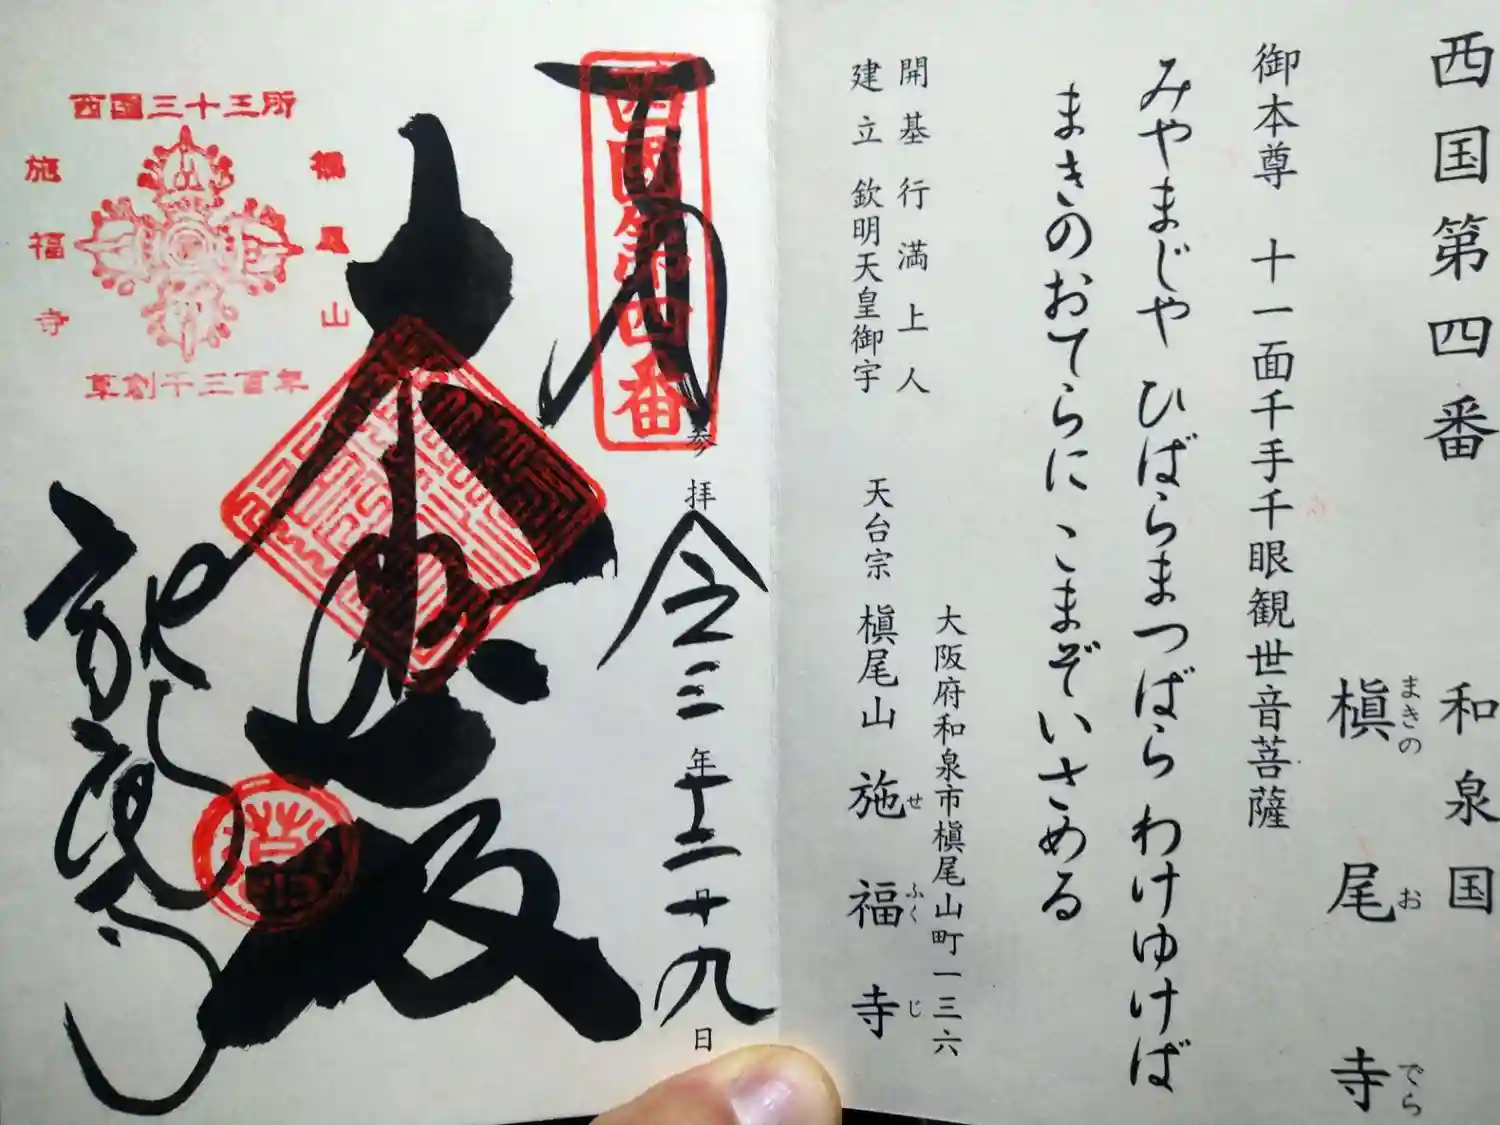 西国第四番 和泉国
槇尾寺
まきのおでら
御本尊 十一面千手千眼観世音菩薩
みやまじや ひばらまつばら わけゆけば
まきのおてらに こまぞいさめる
開基 行満上人
建立 欽明天皇御宇
大阪府和泉市槇尾山町一三六
天台宗 槇尾山 施福寺
せふくじ
西國第四番
奉
参拝
令三年十二月十九日
大悲殿
施福寺
西国三十三所
槇尾山
施福寺
草創千三百年